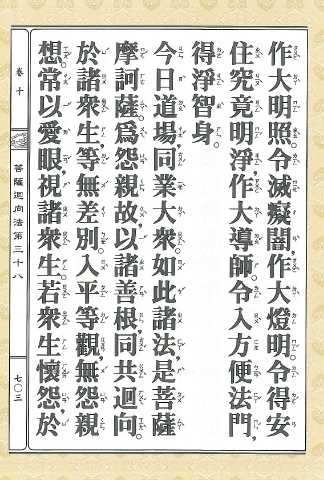 作大明照。令滅癡闇，作大燈明。令得安
住究竟明淨，作大導師。令入方便法門，
得淨智身。
今日道場，同業大衆。如此諸法，是菩薩
摩訶薩。為怨親故，以諸善根，同共迴向。
於諸衆生，等無差別。入平等觀，無怨親
想。常以愛眼，視諸衆生。若衆生懷怨，於
卷十
菩薩迴向法第三十八
七〇三